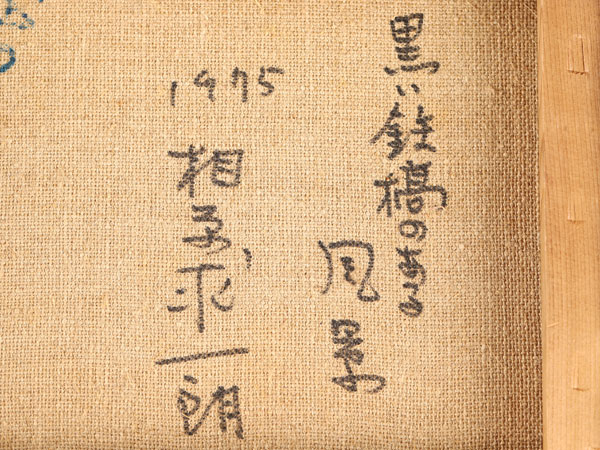 黒い鉄橋のある
風景
1975
相原求一朗